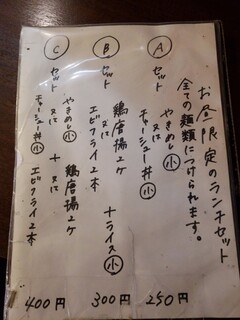 お昼限定のランチセット
全ての麺類につけられます。
Ⓐ セット
やきめし㊙小
又は
チャーシュー丼小
250円
Ⓑ セット
鶏唐揚2ヶ
又は
エビフライ2本
+ライス小
300円
Ⓒ セット
やきめし小
又は
チャーシュー丼小
+
鶏唐揚2ヶ
又は
エビフライ2本
400円